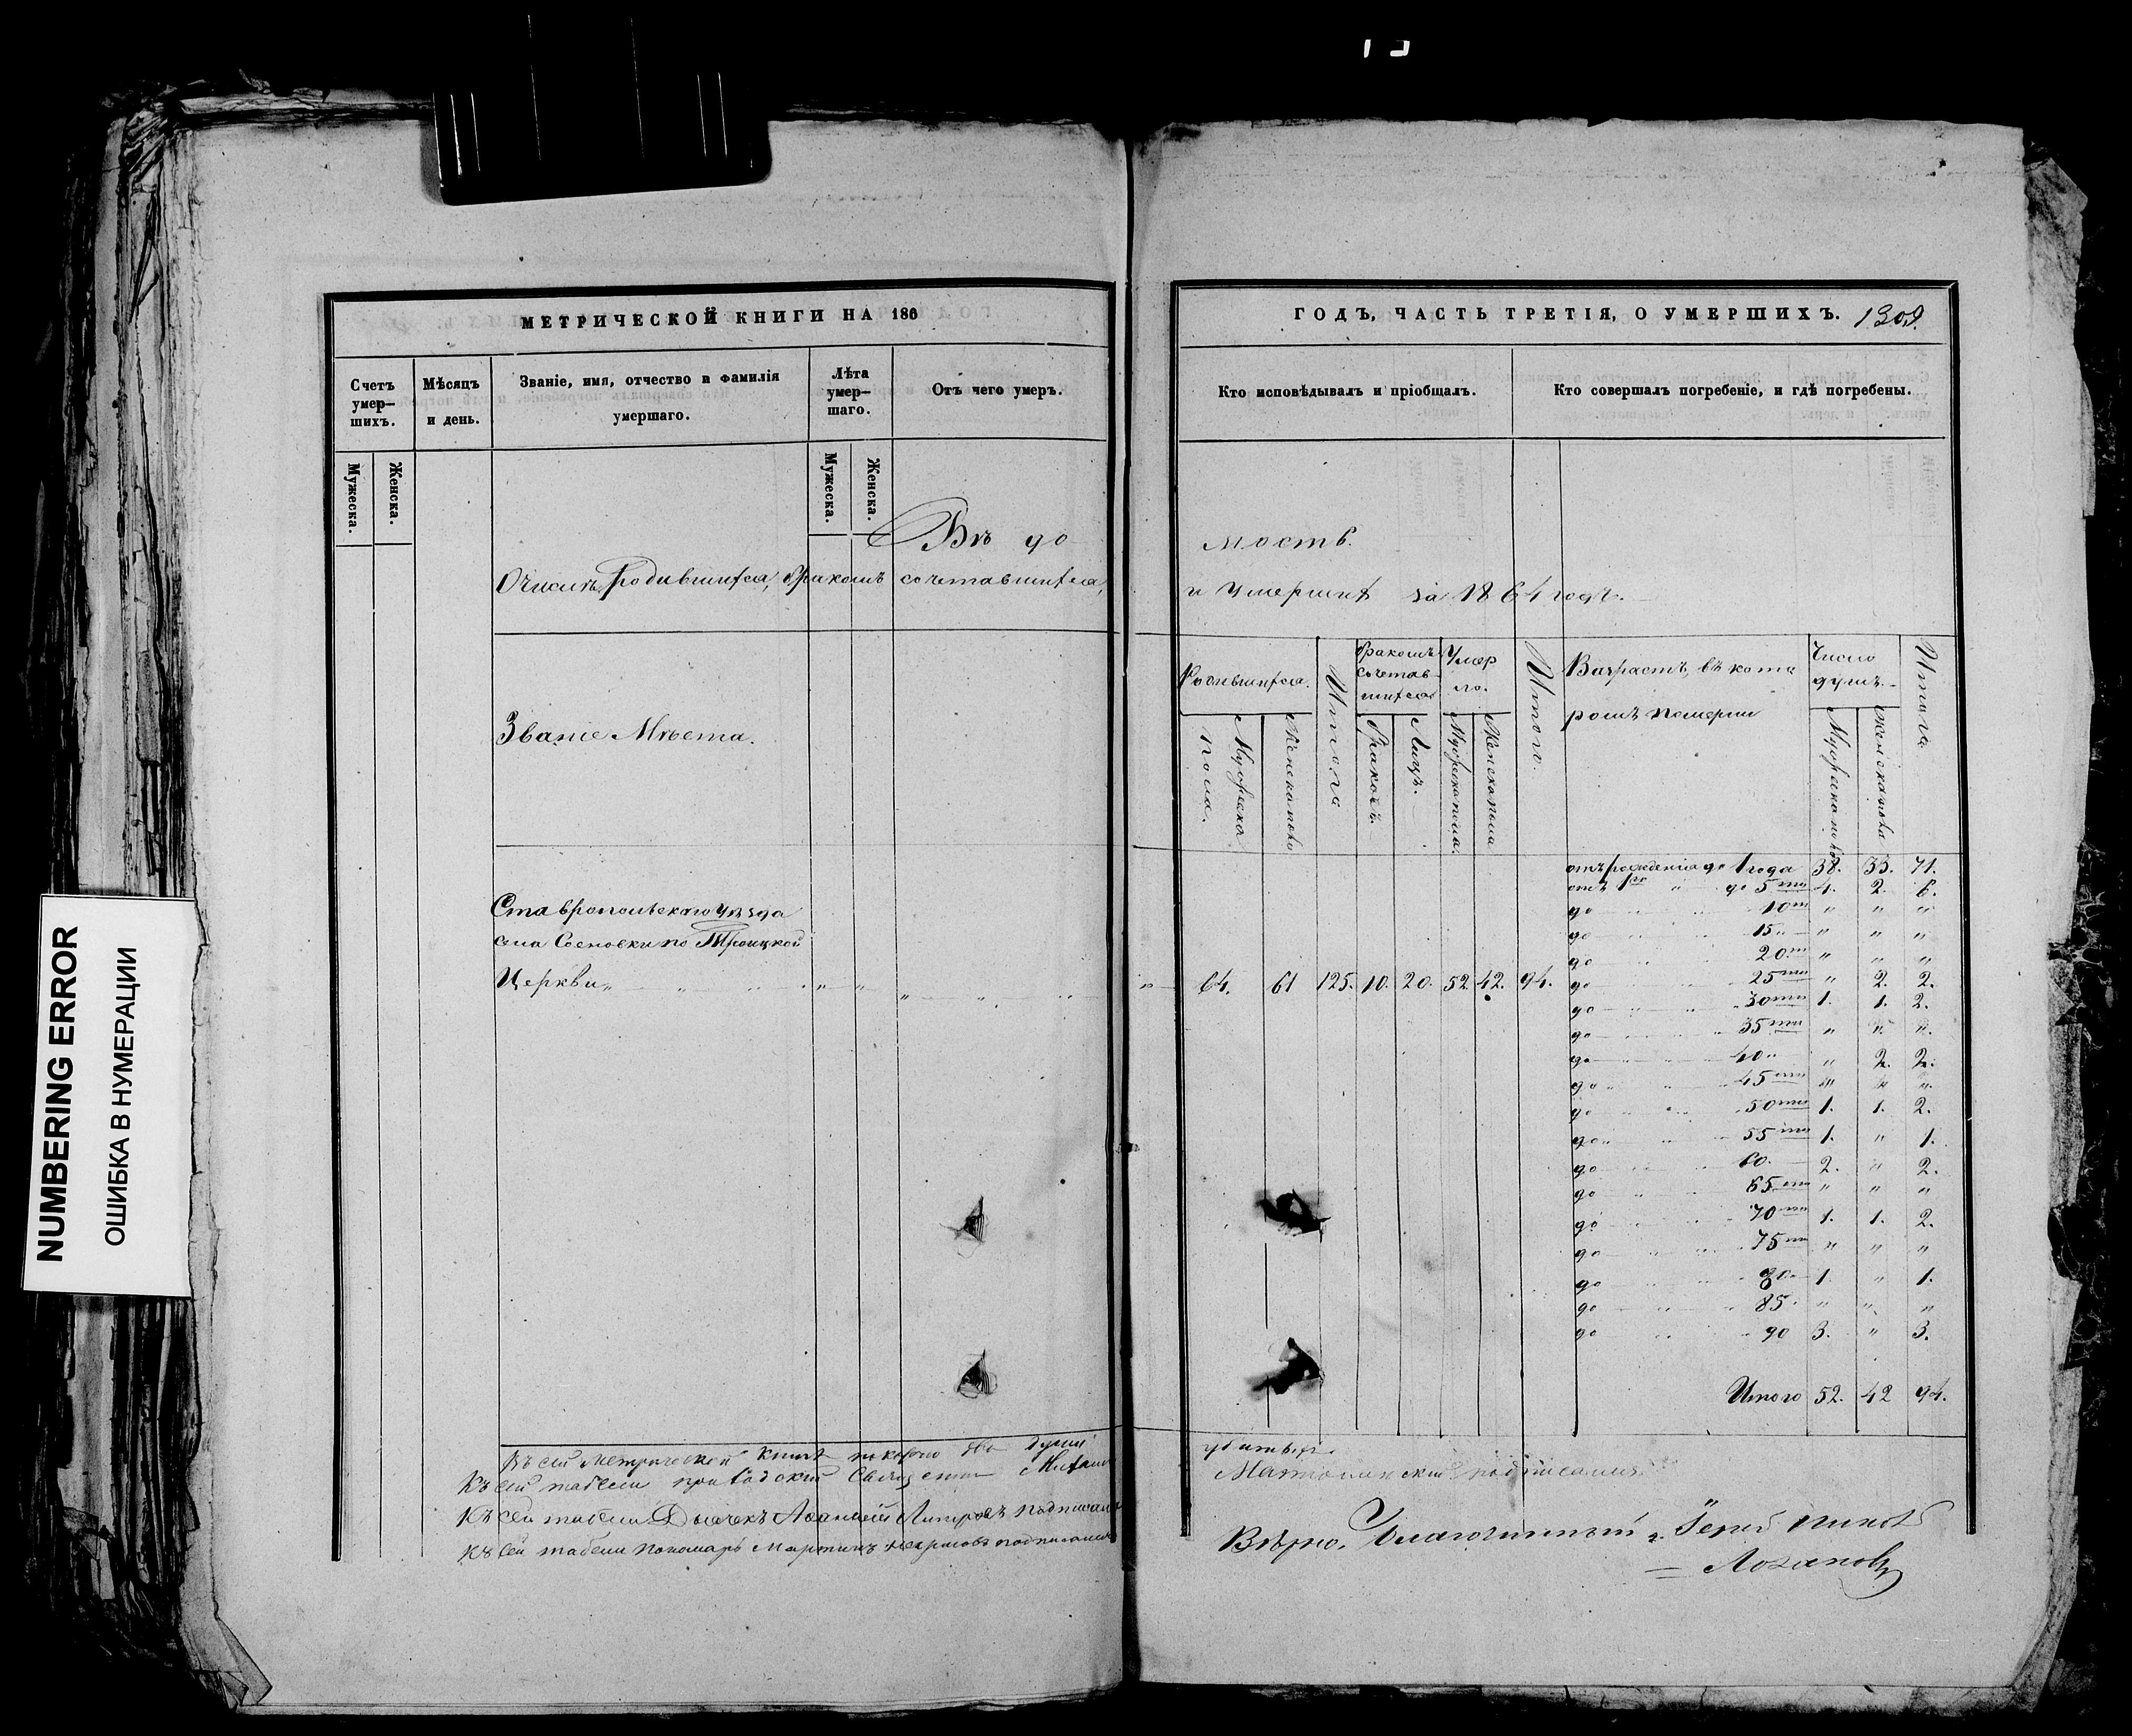 NUMBERING ERROR
ОШИБКА В НУМЕРАЦИИ
МЕТРИЧЕСКОЙ КНИГИ НА 186
Счетъ умер–шихъ.
Мѣсяцъ и день.
Званіе, имя, отчество и фамилія умершаго.
Лѣта умер–шаго.
Отъ чего умеръ.
Мужеска.
Женска.
Мужеска.
Женска.
Вѣдо
О числѣ родившихся, бракомъ сочетавшихся,
Званіе Мѣста.
Ставропольскаго уѣзда
села Сосновки по Троицкой
Церкви
Въ сей метрической книгѣ
Къ сей табели приходский Священник Михаил
Къ сей табели Дьячекъ подписался
Къ сей табели пономарь Мартинъ подписался
ГОДЪ, ЧАСТЬ ТРЕТІЯ, О УМЕРШИХЪ. 1309.
Кто исповѣдывалъ и пріобщалъ.
Кто совершалъ погребеніе, и гдѣ погребены.
мость.
и умершихъ за 1864 годъ.
Родившихся.
Мужеска пола.
Женска пола
Итого
Бракомъ сочетавшихся
Браковъ.
Лицъ.
Умерло.
Мужеска пола.
Женска пола
Итого.
Возрастъ, въ которомъ померли
Число душъ.
Мужеска пола
Женска пола
Итого
64. 61 125. 10. 20. 52. 42. 94.
отъ рожденія до 1 года 38. 33. 71.
отъ 1го " до 5ти 4. 2. 6.
до 10ти " " "
до 15 " " "
до 20ти " " "
до 25ти " 2. 2.
до 30ти 1. 1. 2.
до 35ти " " "
до 40 " 2. 2.
до 45ти " " "
до 50ти 1. 1. 2.
до 55ти 1. " 1.
до 60. 2. " 2.
до 65ти " " "
до 70ти 1. 1. 2.
до 75ти " " "
до 80 1. " 1.
до 85 " " "
до 90 3. " 3.
Итого 52. 42 94.
подписался
Вѣрно, Благочинный